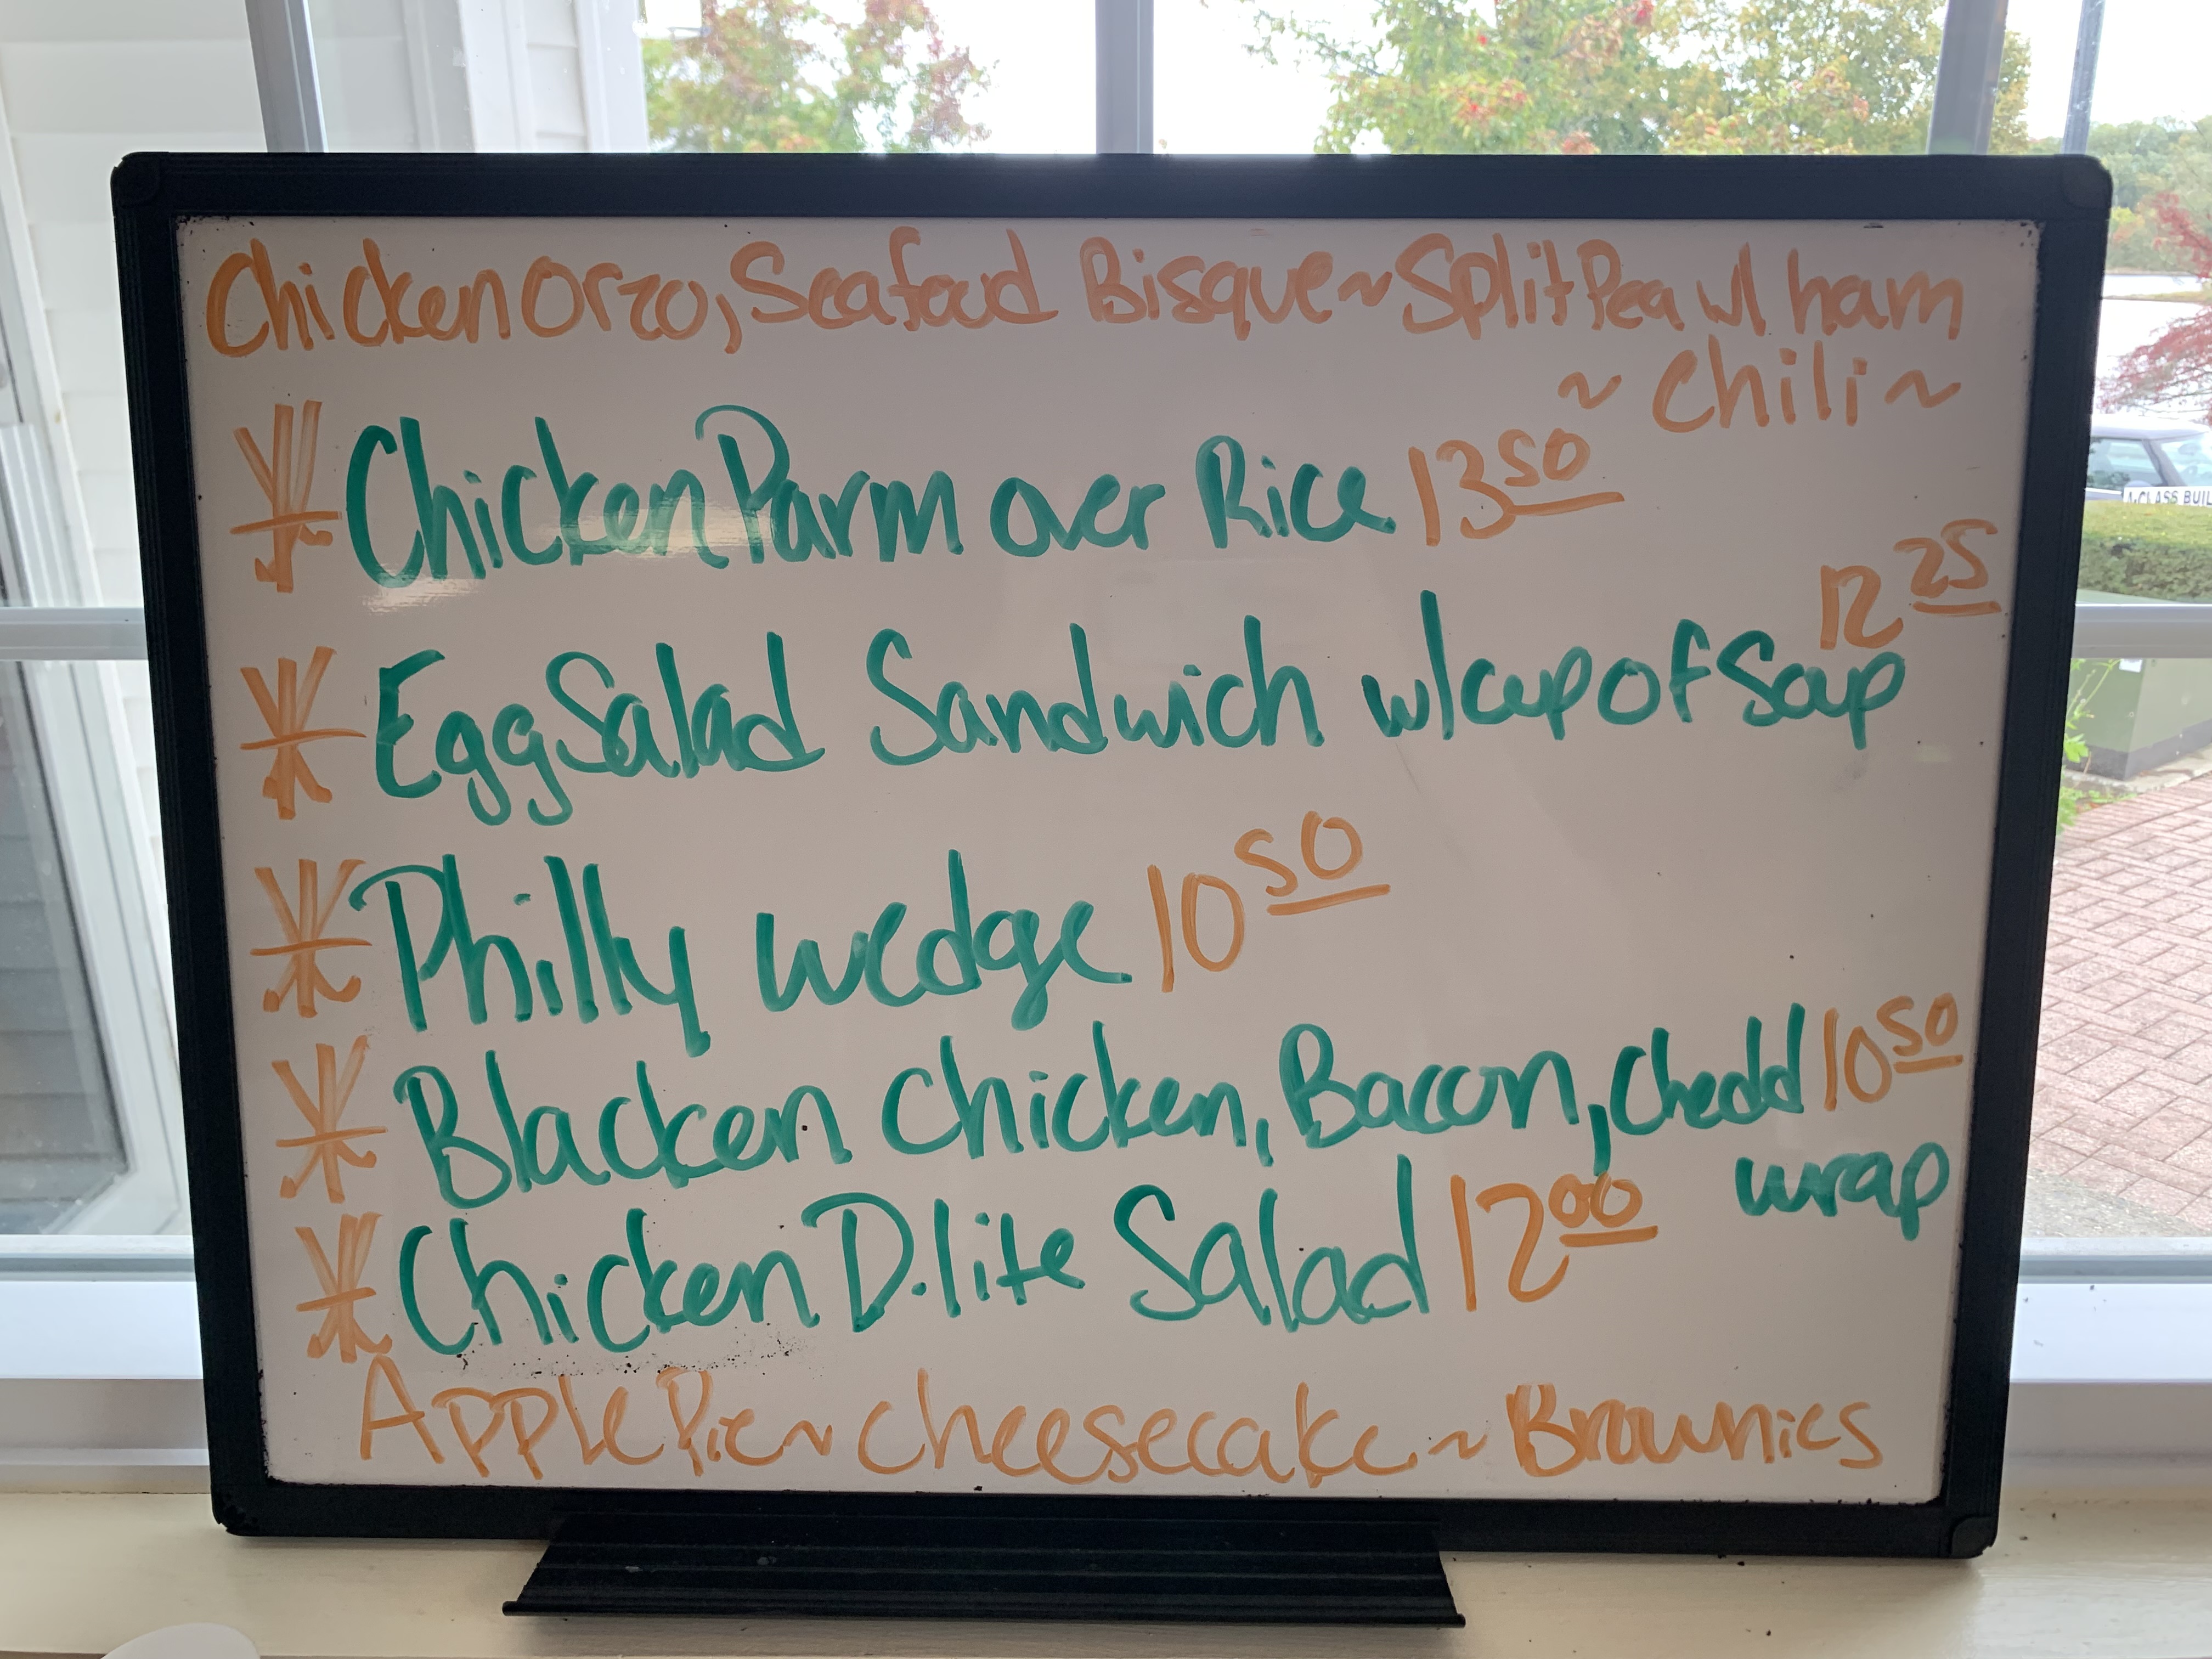 Chicken Orzo, Seafood Bisque ~ Split Pea w/ ham
~ Chili ~
* Chicken Parm over Rice 13 50
12 25
* Egg Salad Sandwich w/ cup of Soup
* Philly wedge 10 50
* Blacken Chicken, Bacon, Chedd 10 50
wrap
* Chicken D.lite Salad 12 00
Apple Pie ~ Cheesecake ~ Brownies